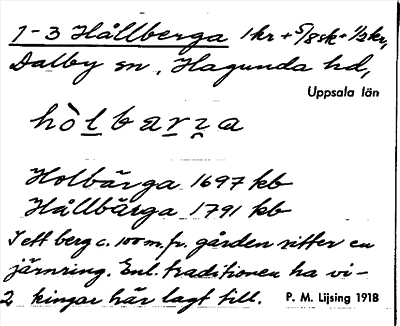 1-3 Hållberga 1 kr + 5/8 sk + 1/3 kr,
Dalby sn, Hagunda hd,
Uppsala län
hòlbarza
Holbärga 1697 kb
Hållbärga 1791 kb
I ett berg c. 100 m. fr. gården sitter en
järnring. Enl. traditionen ha vi-
2 kingar här lagt till.
P. M. Lijsing 1918